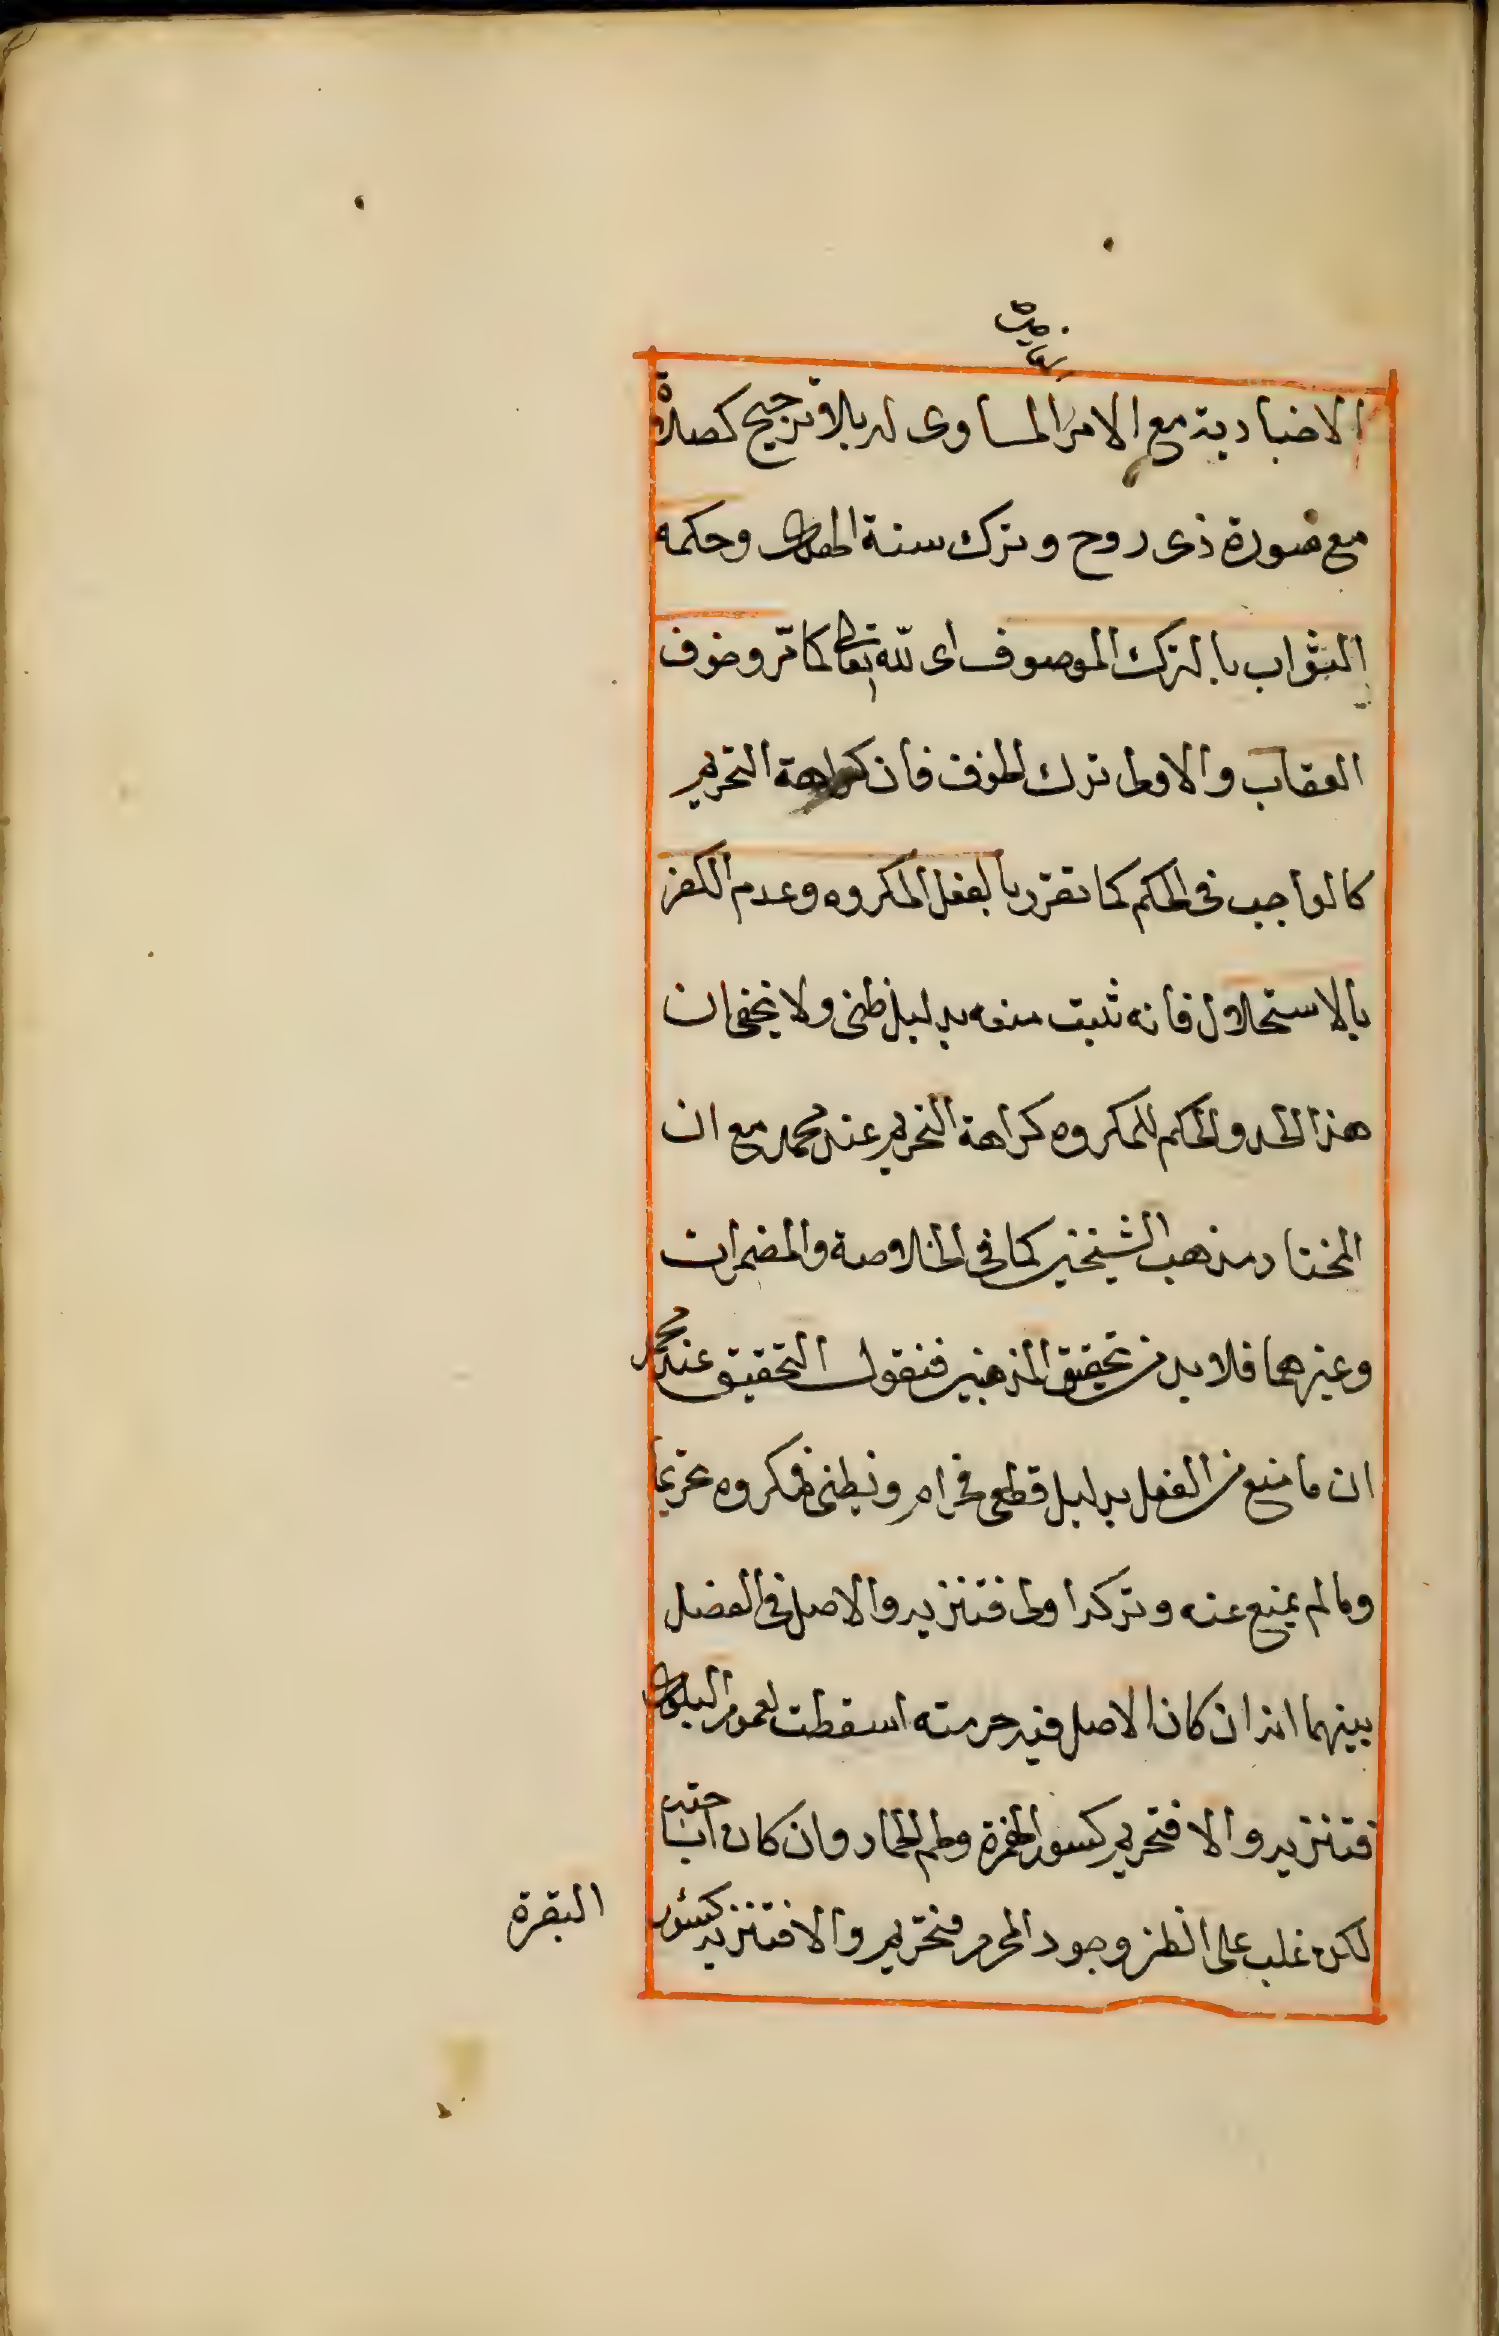 الاخبارية مع الامر المساوى له بلا ترجيح كصلاة
مع صورة ذى روح وترك سنة الهدى وحكمه
الثواب بالترك الموصوف اى لله تعالى كما مرّ وخوف
العقاب والاولى ترك الخوف فان كراهة التحريم
كالواجب فى الحكم كما تقرر بالفعل المكروه وعدم الكفر
بالاستحلال فانه ثبت منعه بدليل ظنى ولا يخفى ان
هذا الحد والحكم للمكروه كراهة التحريم عند محمد مع ان
المختار مذهب الشيخين كما فى الخلاصة والمضمرات
وغيرهما فلا بد من تحقيق المذهبين فنقول التحقيق عند محمد
ان ما منع من الفعل بدليل قطعى فحرام وبظنى فمكروه تحريما
وما لم يمنع عنه وتركه اولى فتنزيه والاصل فى الفصل
بينهما انه ان كان الاصل فيه حرمته اسقطت لعموم البلوى
فتنزيه والا فتحريم كسور الهرة ولحم الحمار وان كان اباحته
لكن غلب على الظن وجود المحرم فتحريم والا فتنزيه كسئور
البقرة